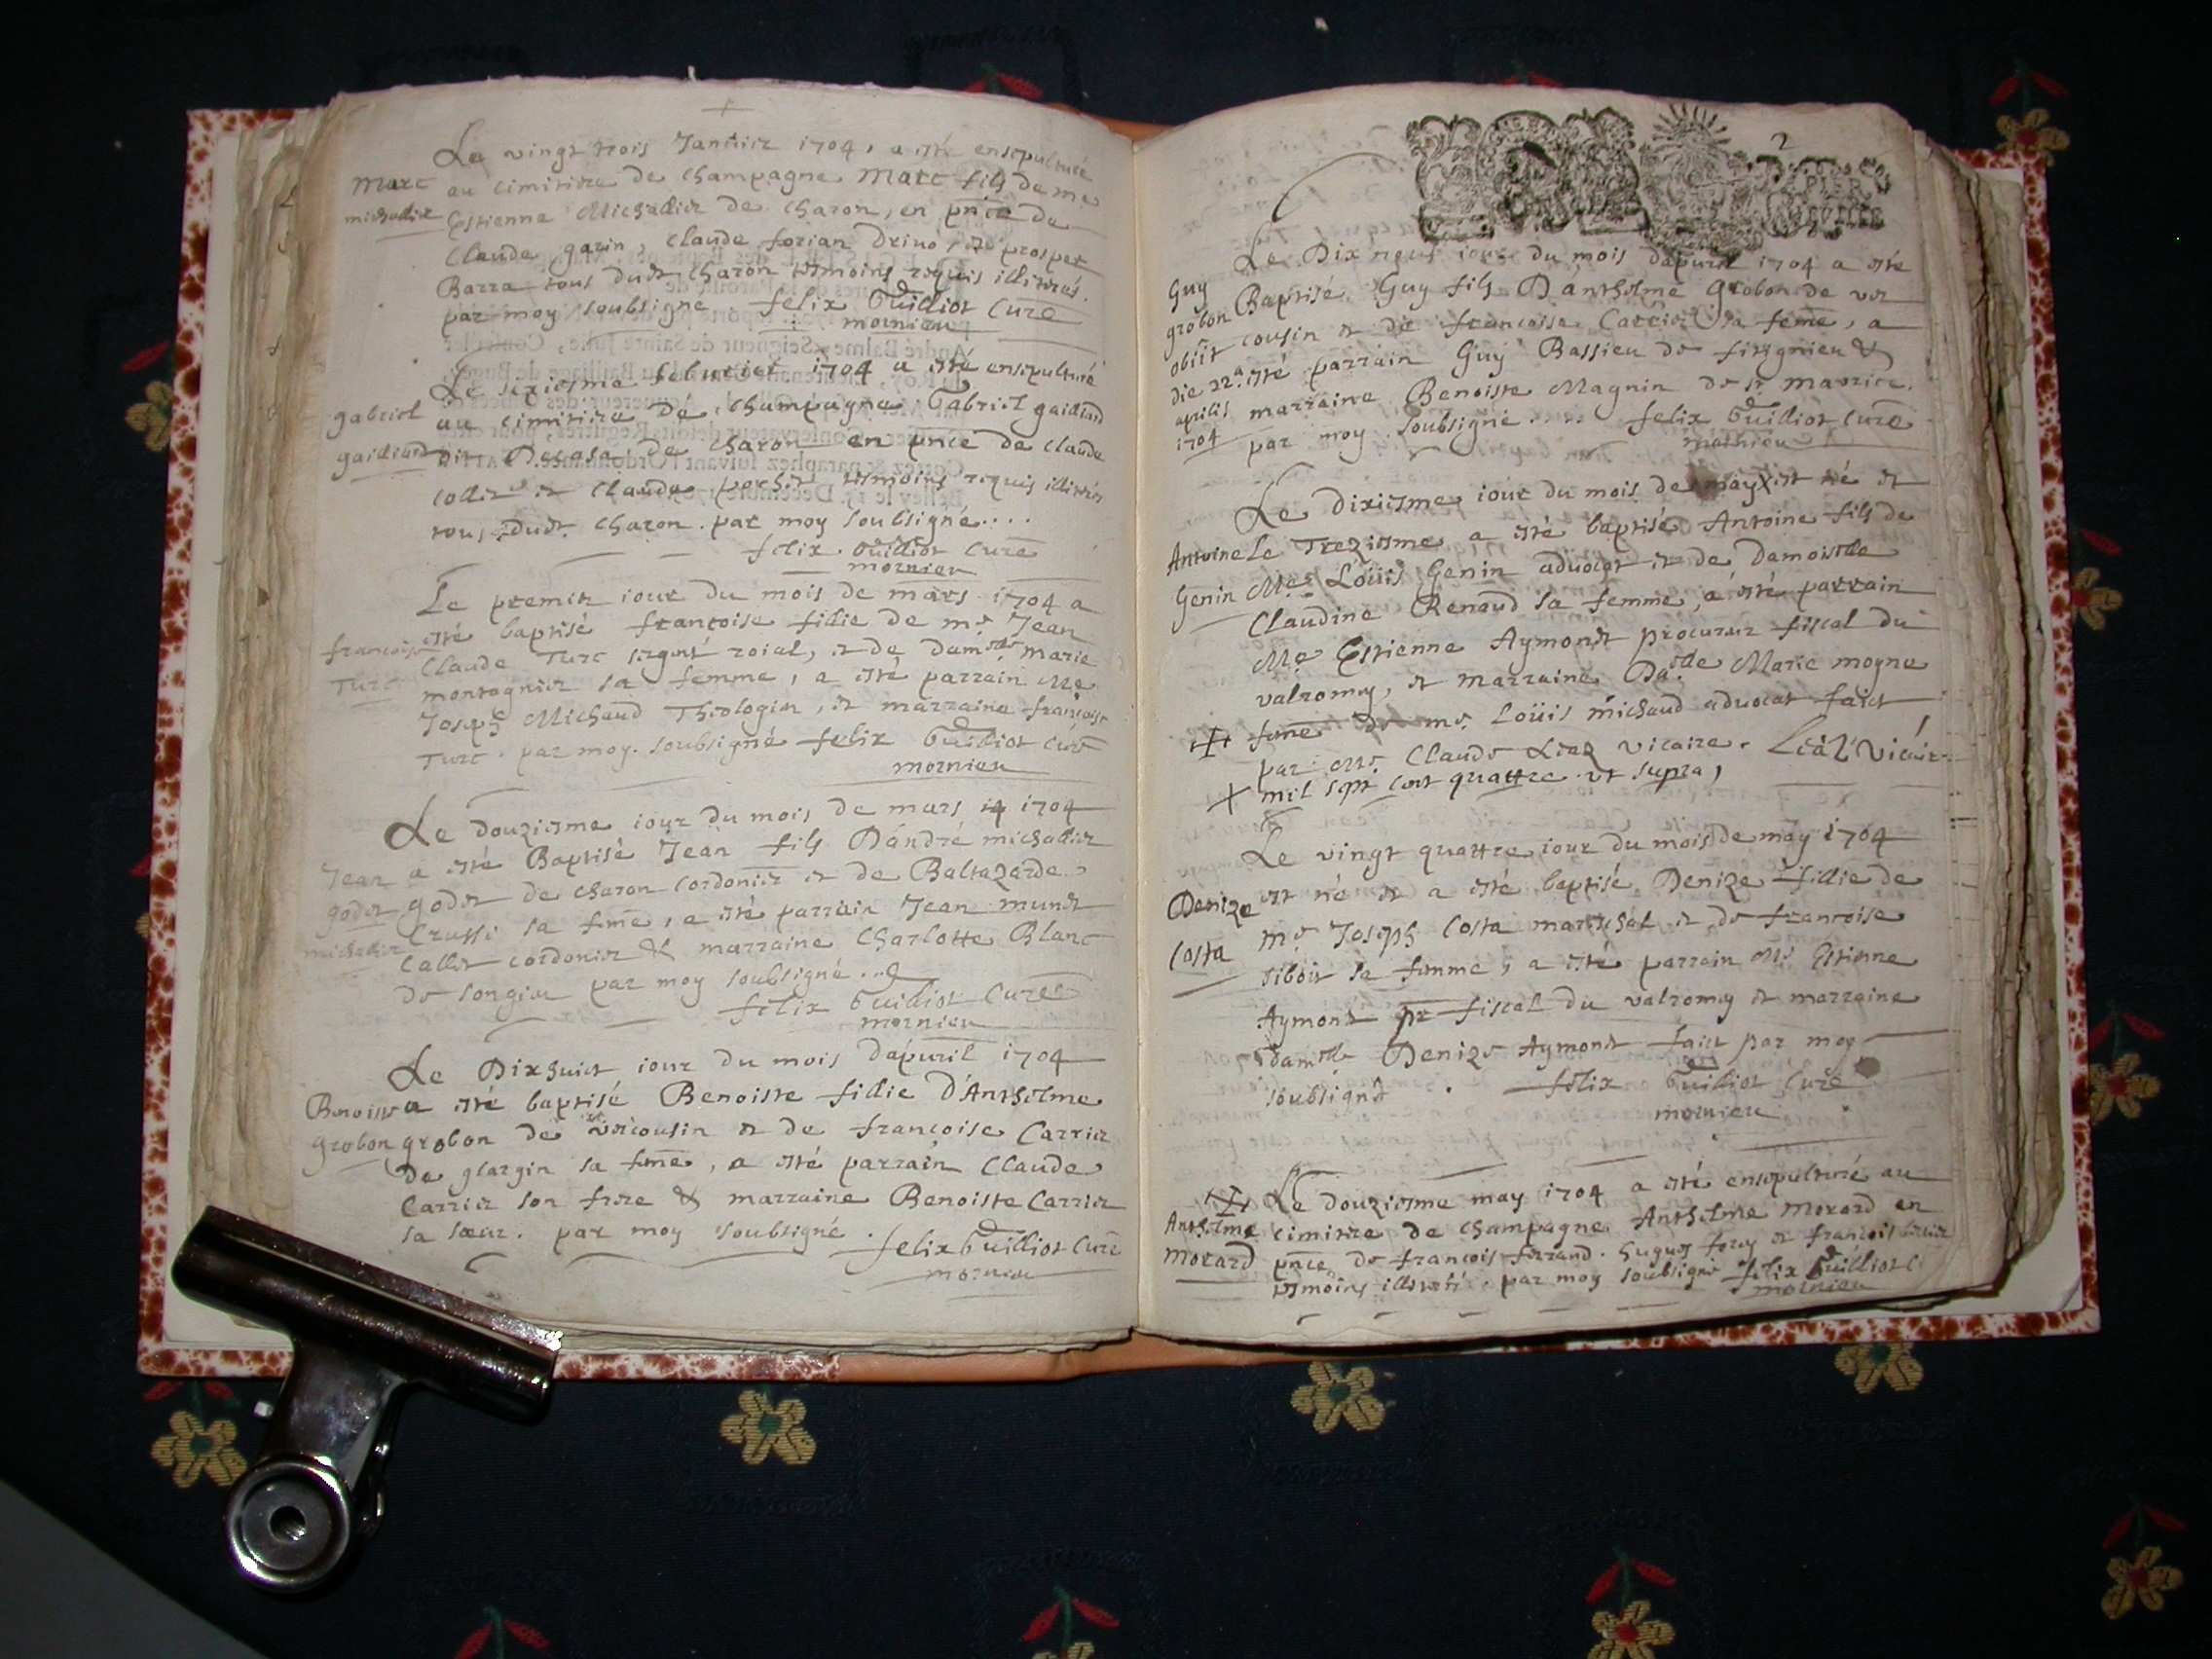 Le vingt trois Janvier 1704, a esté ensepulturé
Marc au cimitiere de Champagne Marc fils de me
michallier Estienne Michallier de charon, en pnce de
Claude garin, Claude forian Drivo, et prosper
Barra tous dudt charon tesmoins requis illitterés.
par moy soubsigné felix Guilliot Curé
mornieu
Le sixiesme febvrier 1704 a esté ensepulturé
gabriel au cimitiere de Champagne Gabriel gailliard
gailliard dit Decasa de charon en pnce de claude
collet et Claude perchet tesmoins requis illiterés
tous dudt charon. par moy soubsigné....
felix Guilliot Curé
mornieu
Le premier iour du mois de mars 1704 a
francoise esté baptisé françoise fillie de me Jean
Turc Claude Turc sergent roial, et de damelle marie
montagnier sa femme, a esté parrain Me
Joseph Michaud Theologien, et marraine françoise
Turc. par moy soubsigné felix Guilliot Curé
mornieu
Le douziesme iour du mois de mars 1704
Jean a esté Baptisé Jean fils D'andré michallier
godet godet de charon cordonier et de Baltazarde
michallier Crussi sa feme, a esté parrain Jean munet
Callet cordonier & marraine Charlotte Blanc
de songieu par moy soubsigné..
felix Guilliot Curé
mornieu
Le Dixhuict iour du mois d'apuril 1704
Benoiste a esté baptisé Benoiste fillie d'Anthelme
grobon grobon de vercousin et de françoise Carrier
de glargin sa feme, a esté parrain Claude
Carrier son frere & marraine Benoiste Carrier
sa sœur. par moy soubsigné.
felix Guilliot Curé
mornieu
2
Le Dix neuf iour du mois d'apuril 1704 a esté
Guy Baptisé Guy fils D'anthelme Grobon de ver
grobon cousin et de francoise Carrier sa feme, a
obiit die 22a esté parrain Guy Bassieu de fitignieu &
aprilis marraine Benoiste Magnin de st maurice.
1704 par moy soubsigné.... felix Guilliot Curé
mornieu
Le dixiesme iour du mois de may est né et
Antoine Le Treziesme a esté baptisé Antoine fils de
Genin Me Loüis Genin aduocat et de Damoiselle
Claudine Renaud sa femme, a esté parrain
Me Estienne Aymonet procureur fiscal du
valromey, et marraine Dalle Marie moyne
feme de me Loüis michaud aduocat faict
par Me Claude Liaz vicaire. Liaz vicaire
mil sept cent quattre ut supra,
Le vingt quattre iour du mois de may 1704
Denize est né et a esté baptisé Denize fillie de
Costa me Joseph Costa mareschal et de francoise
siboit sa femme, a esté parrain Me Estienne
Aymonet pr fiscal du valromey et marraine
damelle Denize Aymonet faict par moy
soubsigné. felix Guilliot Curé
mornieu
Le douziesme may 1704 a esté ensepulturé au
Anthelme cimitiere de Champagne Anthelme Morard en
Morard pnce de francois ferrand. hugues fory et francois
tesmoins illiterés. par moy soubsigné felix Guilliot C
mornieu